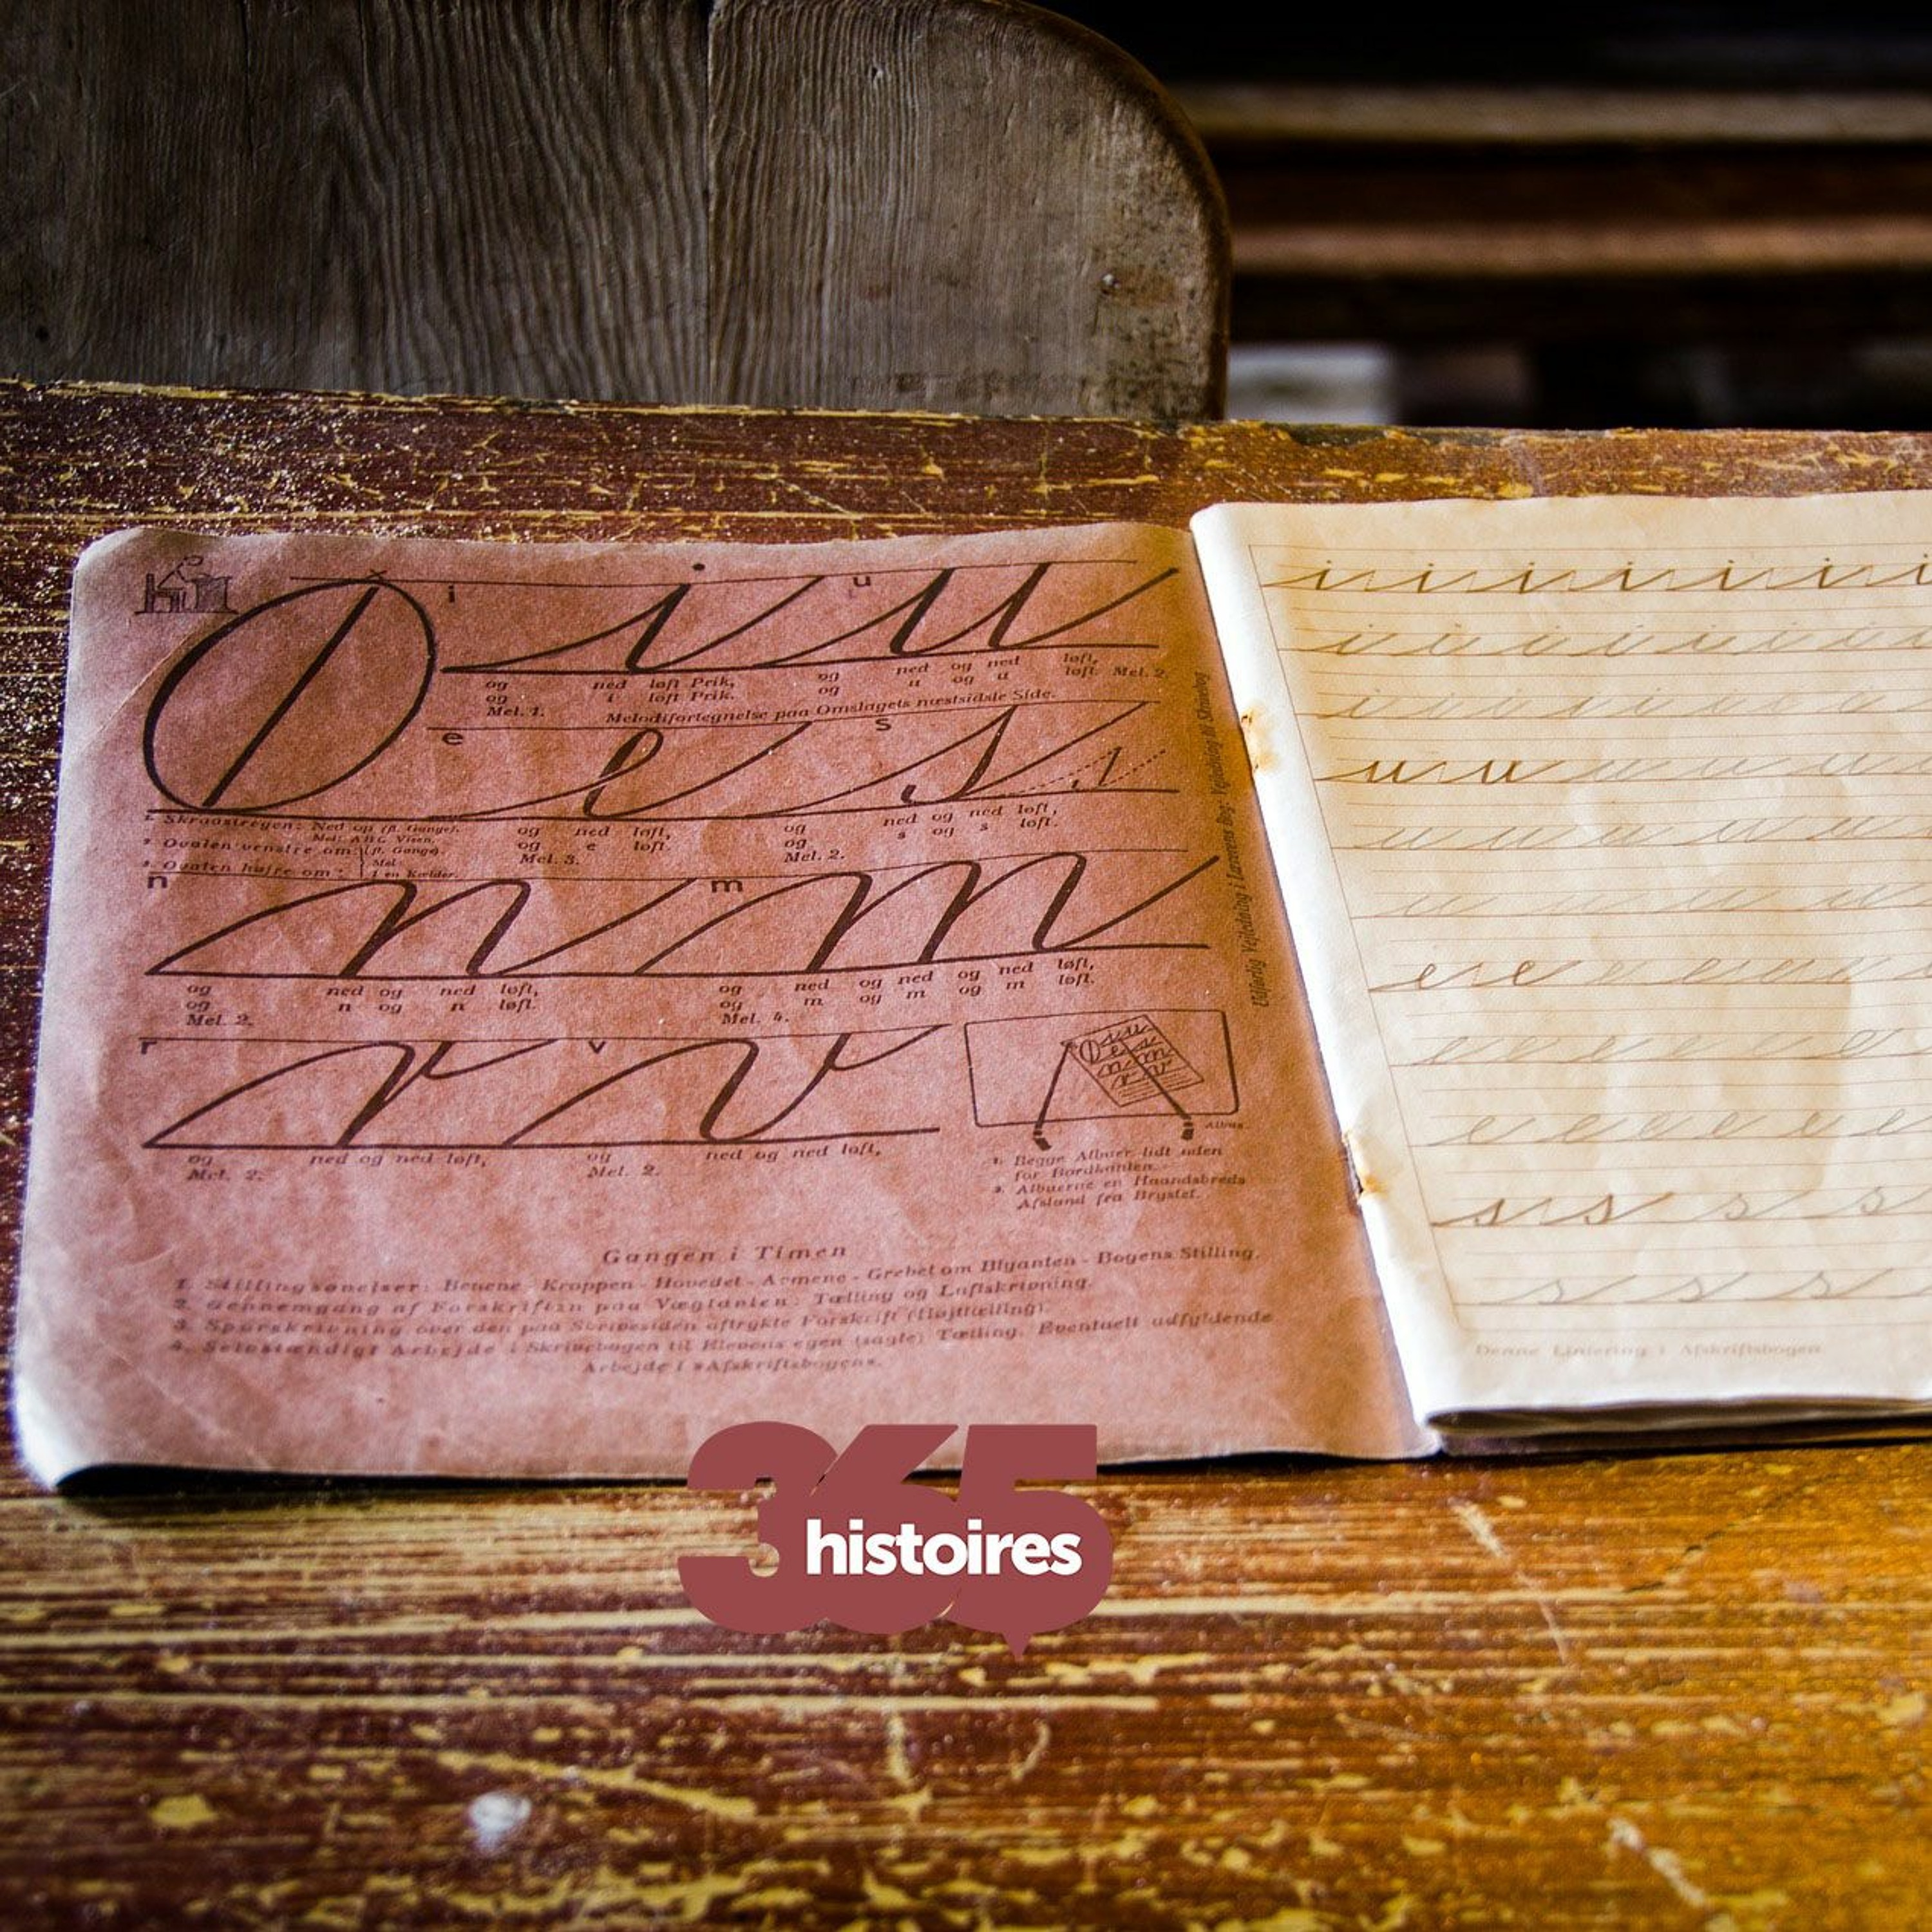 i i u u
og ned løft Prik, og ned og ned løft,
og i løft Prik. og u og u løft. Mel. 2.
Mel. 1. Melodifortegnelse paa Omslagets næstsidste Side.
e e s s
1. Skraastregen: Ned op (fl. Gange).
Mel: ABC Visen,
2. Ovalen venstre om: (fl. Gange).
3. Ovalen højre om: Mel:
og ned løft, og ned og ned løft,
og e løft. s og s løft.
Mel. 3. Mel. 2.
n n m m
og ned og ned løft, og ned og ned og ned løft,
og n og n løft. og m og m og m løft.
Mel. 2. Mel. 4.
r r v v
og ned og ned løft, og ned og ned løft,
Mel. 2. Mel. 2.
Albue
1. Begge Albuer lidt uden
for Bordkanten.
2. Albuerne en Haandsbreds
Afstand fra Brystet.
Gangen i Timen
1. Stillingsøvelser: Benene - Kroppen - Hovedet - Armene - Grebet om Blyanten - Bogens Stilling.
2. Gennemgang af Forskriften paa Vægtavlen. Tælling og Luftskrivning.
3. Sporskrivning over den paa Skrivesiden aftrykte Forskrift (Højttælling).
4. Selvstændigt Arbejde i Skrivebogen til Elevens egen (sagte) Tælling. Eventuelt udfyldende
Arbejde i »Afskriftsbogen«.
i i i i i i i
i i i i i i i
i i i i i i
u u u u u u
u u u u u
u u u u u
e e e e e e
e e e e e
e e e e e
s s s s s
s s s s
Denne Liniering i Afskriftsbogen.
365
histoires